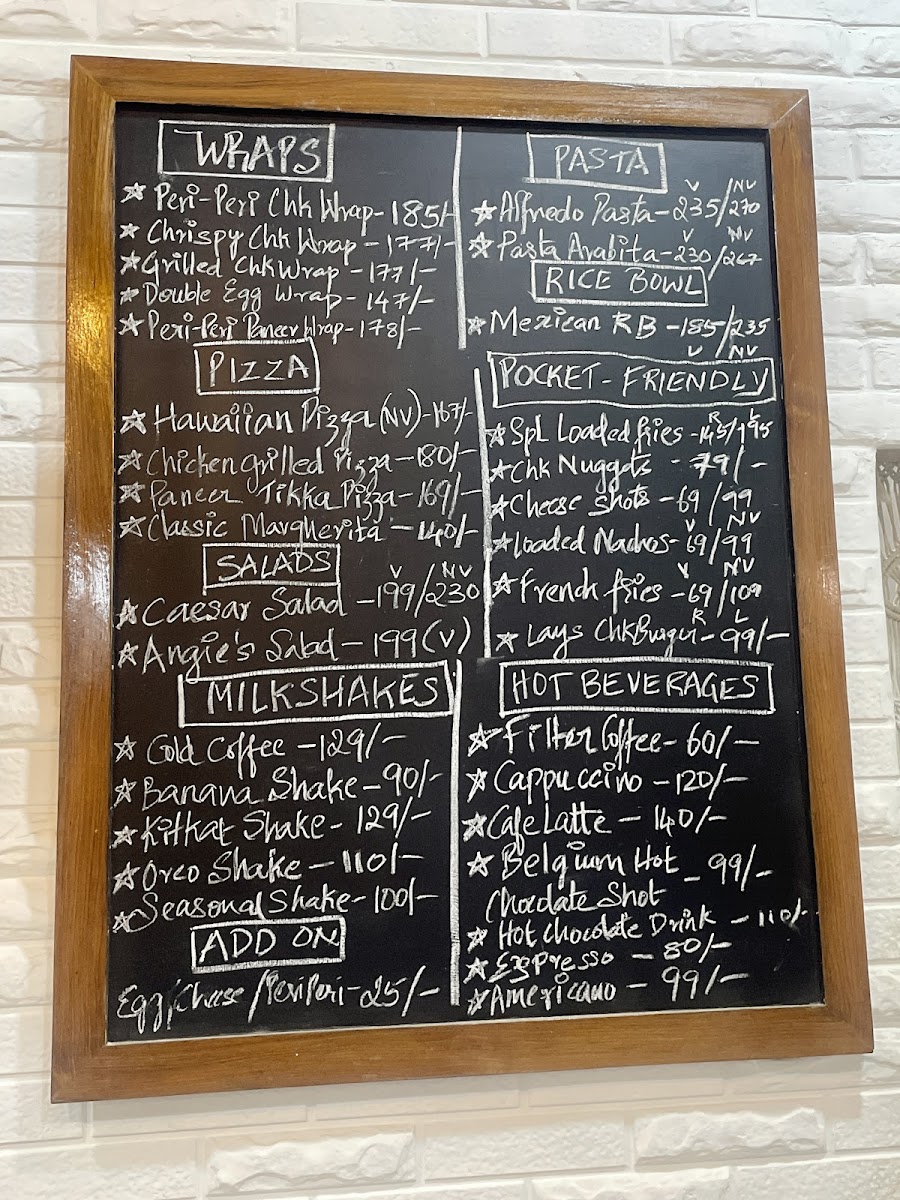 WRAPS
☆ Peri-Peri Chk Wrap-185/-
☆ Chrispy Chk Wrap-177/-
☆ Grilled Chk Wrap-177/-
☆ Double Egg Wrap-147/-
☆ Peri-Peri Paneer Wrap-178/-
PIZZA
☆ Hawaiian Pizza (NV)-167/-
☆ Chicken grilled Pizza-180/-
☆ Paneer Tikka Pizza-169/-
☆ Classic Margherita-140/-
SALADS
V NV
☆ Caesar Salad-199/230
☆ Angie's Salad-199(V)
MILKSHAKES
☆ Cold Coffee-129/-
☆ Banana Shake-90/-
☆ Kitkat Shake-129/-
☆ Oreo Shake-110/-
☆ Seasonal Shake-100/-
ADD ON
Egg/Cheese/PeriPeri-25/-
PASTA
V NV
☆ Alfredo Pasta-235/270
V NV
☆ Pasta Arabita-230/267
RICE BOWL
☆ Mexican RB-185/235
V NV
POCKET-FRIENDLY
R L
☆ Spl Loaded fries-145/195
☆ Chk Nuggets-79/-
☆ Cheese Shots-69/99
V NV
☆ Loaded Nachos-69/99
V NV
☆ French fries-69/109
R L
☆ Lays Chk Burger-99/-
HOT BEVERAGES
☆ Filter Coffee-60/-
☆ Cappuccino-120/-
☆ Cafe Latte-140/-
☆ Belgium Hot-99/-
Chocolate Shot
☆ Hot Chocolate Drink-110/-
☆ Expresso-80/-
☆ Americano-99/-